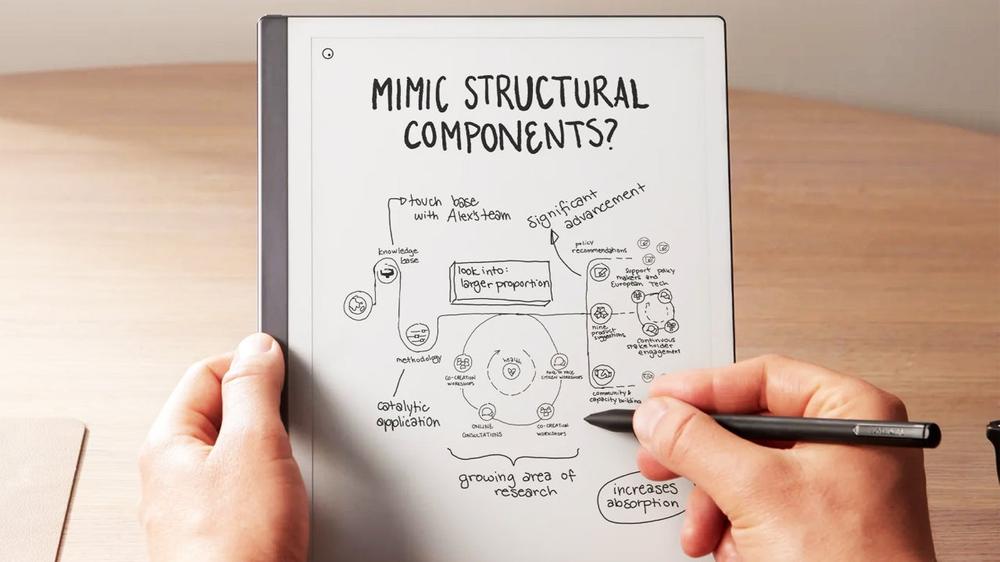 MIMIC STRUCTURAL
COMPONENTS?
touch base
with Alex's team
significant
advancement
knowledge
base
look into:
larger proportion
policy
recommendations
support policy
makers and
European Tech
nine
product
suggestions
continuous
stakeholder
engagement
methodology
HEALTH
CO-CREATION
WORKSHOPS
FACE TO FACE
CITIZEN WORKSHOPS
community &
capacity building
catalytic
application
ONLINE
CONSULTATIONS
CO-CREATION
WORKSHOPS
growing area of
research
increases
absorption